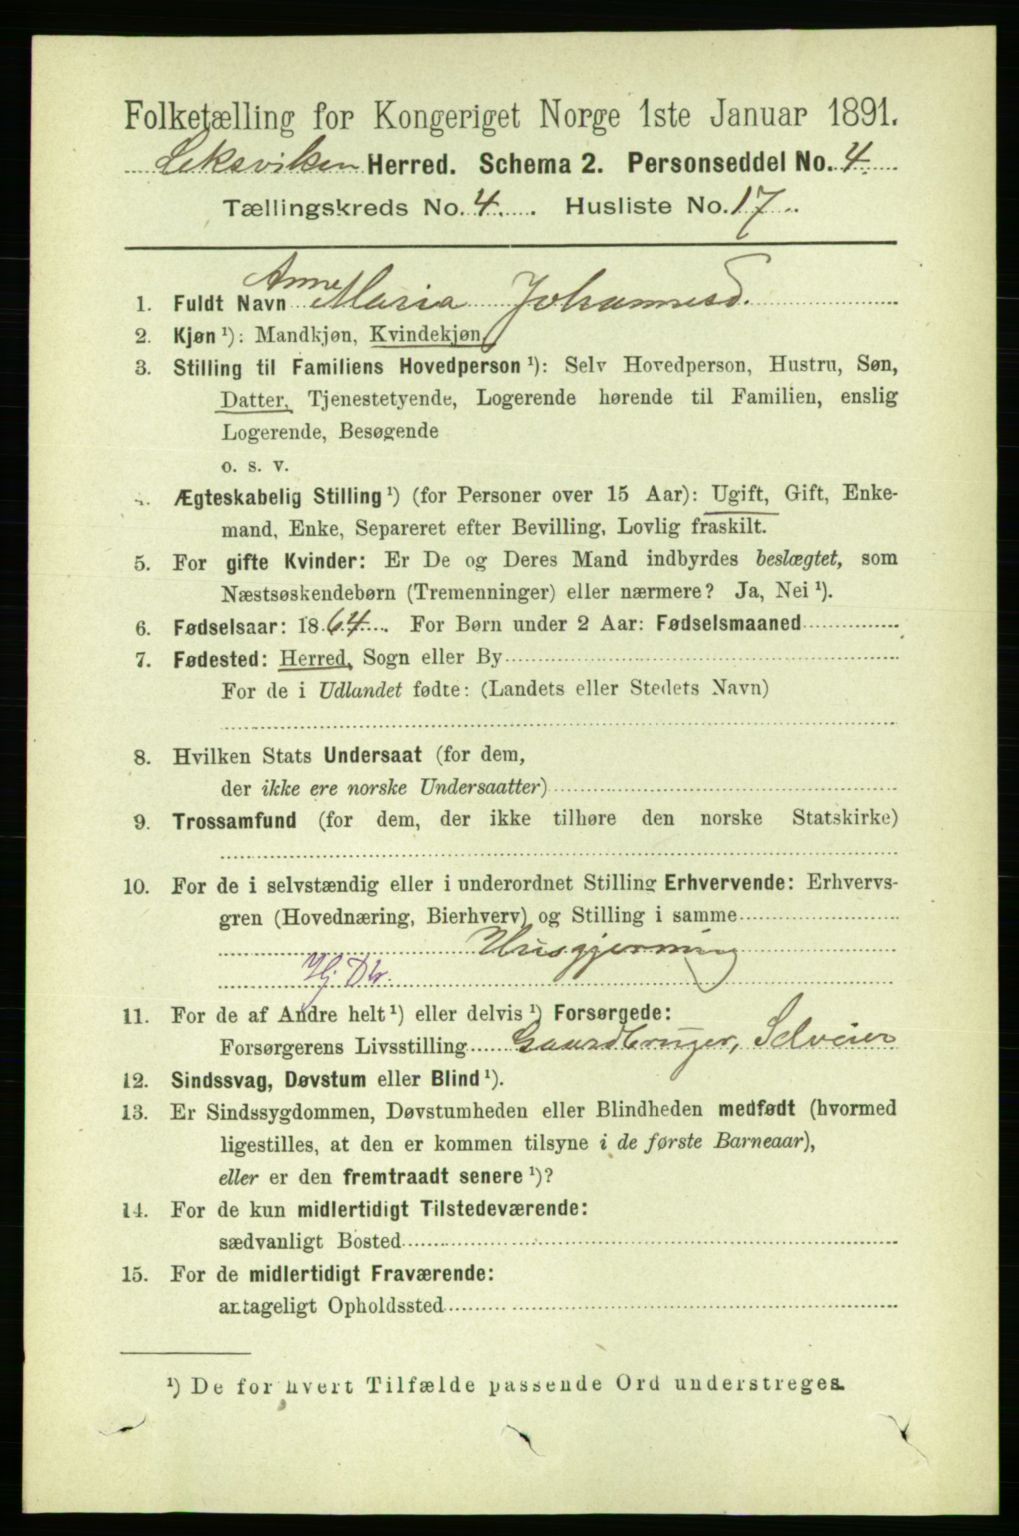 Folketælling for Kongeriget Norge 1ste Januar 1891.
Leksviken Herred. Schema 2. Personseddel No. 4.
Tællingskreds No. 4. Husliste No. 17
1. Fuldt Navn Anne Maria Johannesd.
2. Kjøn ¹): Mandkjøn, Kvindekjøn
3. Stilling til Familiens Hovedperson ¹): Selv Hovedperson, Hustru, Søn,
Datter, Tjenestetyende, Logerende hørende til Familien, enslig
Logerende, Besøgende
o. s. v.
4. Ægteskabelig Stilling ¹) (for Personer over 15 Aar): Ugift, Gift, Enke-
mand, Enke, Separeret efter Bevilling, Lovlig fraskilt.
5. For gifte Kvinder: Er De og Deres Mand indbyrdes beslægtet, som
Næstsøskendebørn (Tremenninger) eller nærmere? Ja, Nei ¹).
6. Fødselsaar: 1864. For Børn under 2 Aar: Fødselsmaaned
7. Fødested: Herred, Sogn eller By
For de i Udlandet fødte: (Landets eller Stedets Navn)
8. Hvilken Stats Undersaat (for dem,
der ikke ere norske Undersaatter)
9. Trossamfund (for dem, der ikke tilhøre den norske Statskirke)
10. For de i selvstændig eller i underordnet Stilling Erhvervende: Erhvervs-
gren (Hovednæring, Bierhverv) og Stilling i samme
Husgjerning
Hj. Dtr.
11. For de af Andre helt ¹) eller delvis ¹) Forsørgede:
Forsørgerens Livsstilling Gaardbruger, Selveier
12. Sindssvag, Døvstum eller Blind ¹).
13. Er Sindssygdommen, Døvstumheden eller Blindheden medfødt (hvormed
ligestilles, at den er kommen tilsyne i de første Barneaar),
eller er den fremtraadt senere ¹)?
14. For de kun midlertidigt Tilstedeværende:
sædvanligt Bosted
15. For de midlertidigt Fraværende:
antageligt Opholdssted
¹) De for hvert Tilfælde passende Ord understreges.